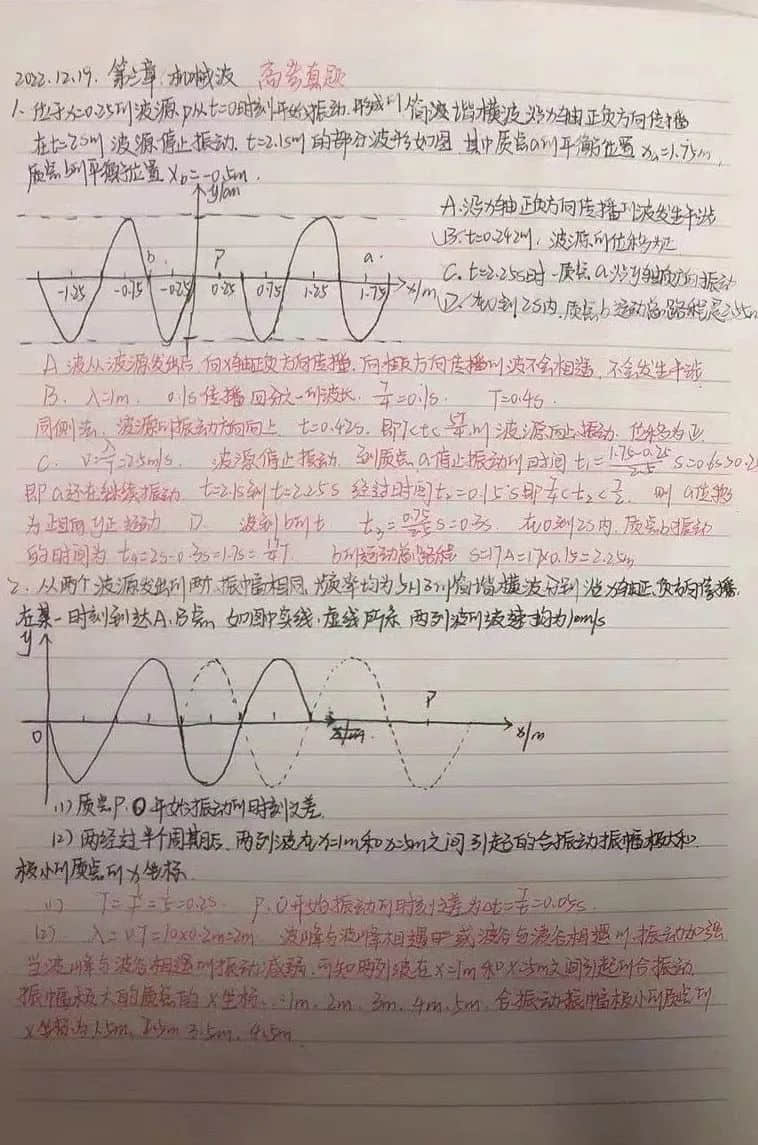 2022.12.19. 第三章 机械波 高考真题
1. 位于x=0.25m的波源p从t=0时刻开始振动,形成的简谐横波沿x轴正负方向传播
在t=2.0s时波源停止振动, t=2.1s时的部分波形如图,其中质点a的平衡位置 xa=1.75m,
质点b的平衡位置 xb=-0.5m.
y/cm
A.沿x轴正负方向传播的波发生干涉
B. t=0.42s时,波源的位移为正
C. t=2.25s时,质点a沿y轴负方向振动
D. 在0到2s内,质点b运动总路程是2.55m
b P a
-1.25 -0.75 -0.25 0.25 0.75 1.25 1.75 x/m
A 波从波源发出后,向x轴正负方向传播,向相反方向传播的波不会相遇,不会发生干涉
B. λ=1m, 0.1s传播四分之一的波长, T/4=0.1s. T=0.4s.
同侧法,波源的振动方向向上 t=0.42s,即T<t< 时波源向上振动,位移为正
C. v=λ/T=2.5m/s. 波源停止振动,到质点a停止振动的时间 t1=(1.75-0.25)/2.5 s=0.6s>0.2
即a还在继续振动, t=2.1s到t=2.25s 经过时间t2=0.15s即T/4<t2<T/2, 则a位移
为正且向y正 D. 波到b的t t3=0.75/2.5 s=0.3s. 在0到2s内,质点b振动
的时间为 t4=2s-0.3s=1.7s=17/4T. b的运动总路程 s=17A=17×0.15=2.25m
2. 从两个波源发出的两列振幅相同、频率均为5Hz的简谐横波分别沿x轴正、负方向传播,
在某一时刻到达A、B点,如图中实线、虚线所示 两列波的波速均为10m/s
y
P
O x/m
(1) 质点P、O开始振动的时刻之差.
(2) 再经过半个周期后,两列波在x=1m和x=5m之间引起的合振动振幅极大和
极小的质点的x坐标.
(1) T=1/f=1/5=0.2s. P、O开始振动的时刻之差为Δt=T/4=0.05s.
(2) λ=vT=10×0.2m=2m 波峰与波峰相遇 或波谷与波谷相遇时,振动加强
当波峰与波谷相遇时振动减弱,可知两列波在x=1m和x=5m之间引起的合振动
振幅极大的质点的x坐标:1m、2m、3m、4m、5m, 合振动振幅极小的质点的
x坐标为1.5m、2.5m、3.5m、4.5m